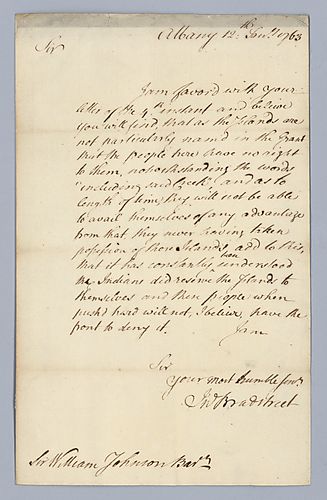 Albany 12th Jany 1763
Sir
I am favord with your
letter of the 4th instant and believe
you will find, that as the Islands are
not particularly namd in the Grant
that the people here have no right
to them, notwithstanding the words
"including said Creek" and as to
length of time, they will not be able
to avail themselves of any advantage
from that they never having taken
possession of those Islands, add to this,
that it has constantly been understood
the Indians did reserve the Islands to
themselves and these people when
push'd hard will not, I believe, have the
front to deny it.
I am
Sir
Your most humble Servt
Jno Bradstreet
Sir William Johnson Bart